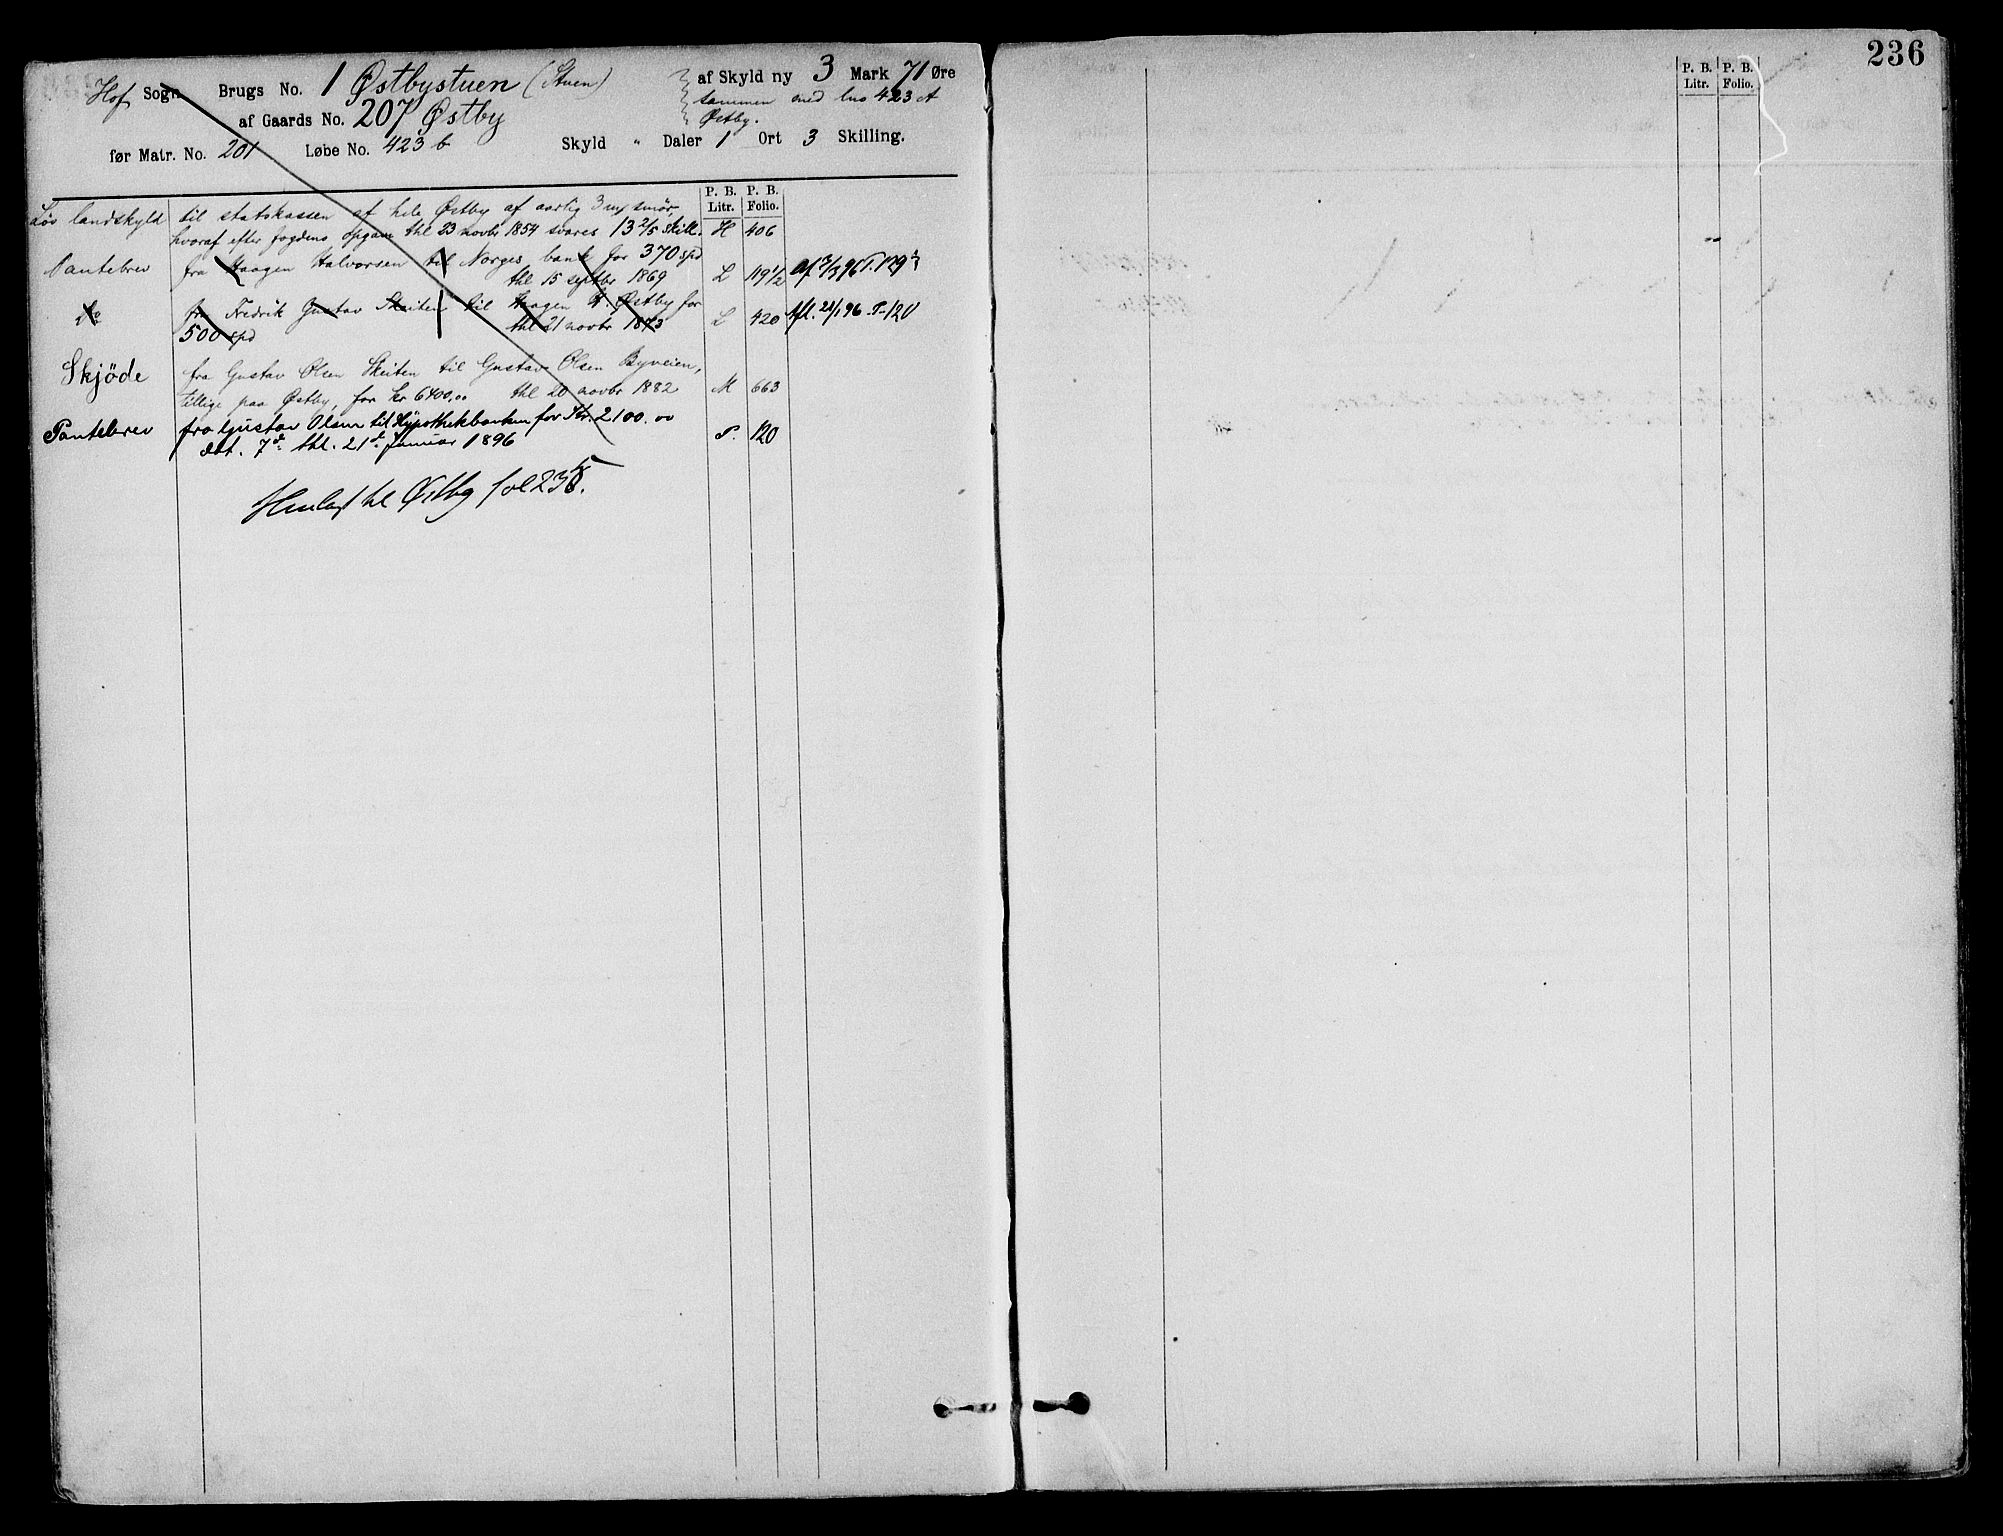 236
Hof Sogn Brugs No. 1 Østbystuen (Stuen) af Skyld ny 3 Mark 71 Øre
sammen med lno 423 A
af Gaards No. 207 Østby Østby.
før Matr. No. 201 Løbe No. 423 b Skyld " Daler 1 Ort 3 Skilling.
P. B. P. B.
Litr. Folio.
Løs landskyld til statskassen af hele Østby af aarlig 3 smör,
hvoraf efter fogdens opgave thl 23 novbr 1854 svares 13 2/5 Skill. H 406
Pantebrev fra Haagen Halvorsen til Norges bank for 370 spd
thl 15 septbr 1869 L 119 1/2
Do fra Fredrik Gustav Skeiten til Haagen H. Østby for
500 spd thl 21 novbr 1873 L 420 Afl. 21/1 96 P-120
Skjöde fra Gustav Olsen Skeiten til Gustav Olsen Byveien,
tillige paa Østby, for kr 6400,00 thl 20 novbr 1882 M 663
Pantebrev fra Gustav Olsen til Hypothekbanken for Kr. 2100.00
dat. 7de thl. 21de Januar 1896 P. 120
Henlagt til Østby fol 235.
P. B. P. B.
Litr. Folio.